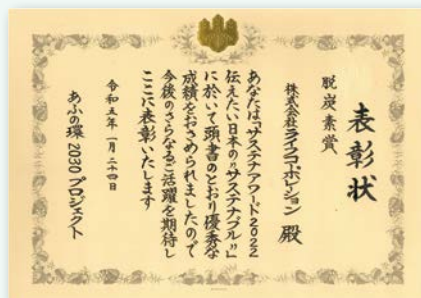 表彰状
脱炭素賞
株式会社ライフコーポレーション 殿
あなたは「サステナアワード2022
伝えたい日本の“サステナブル”」
に於いて頭書のとおり優秀な
成績をおさめられましたので
今後のさらなるご活躍を期待し
ここに表彰いたします
令和五年一月二十四日
あふの環2030プロジェクト